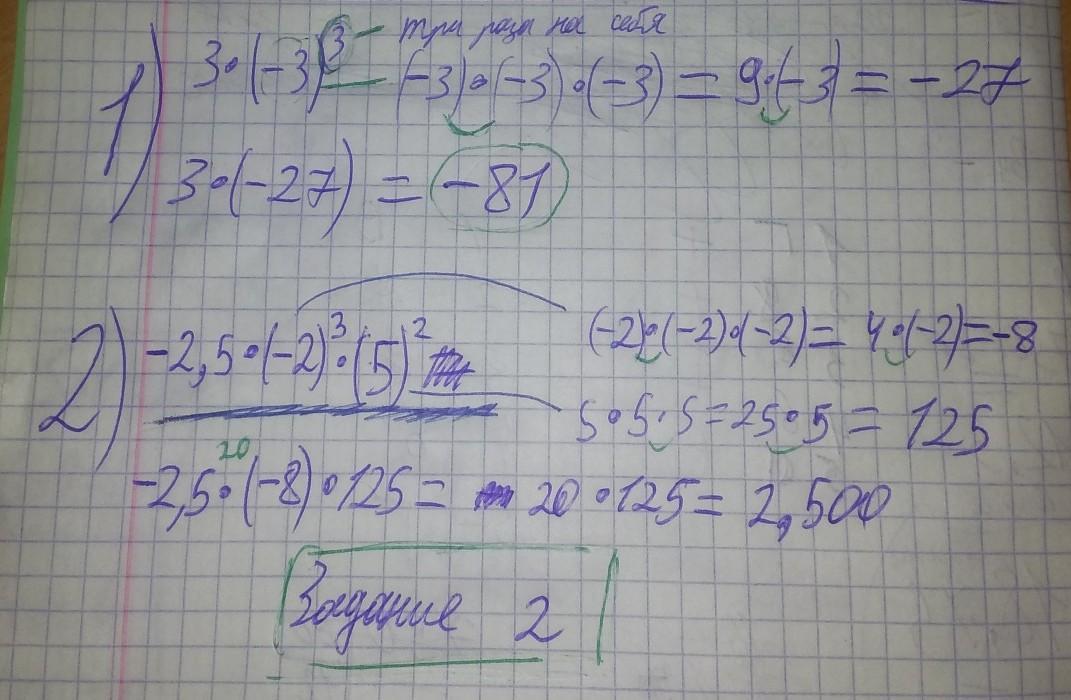 три раза на себя
1) 3·(-3)³ = (-3)·(-3)·(-3) = 9·(-3) = -27
3·(-27) = -81
2) -2,5·(-2)³·(5)²
(-2)·(-2)·(-2) = 4·(-2) = -8
5·5·5 = 25·5 = 125
20
-2,5·(-8)·125 = 20·125 = 2,500
Задание 2